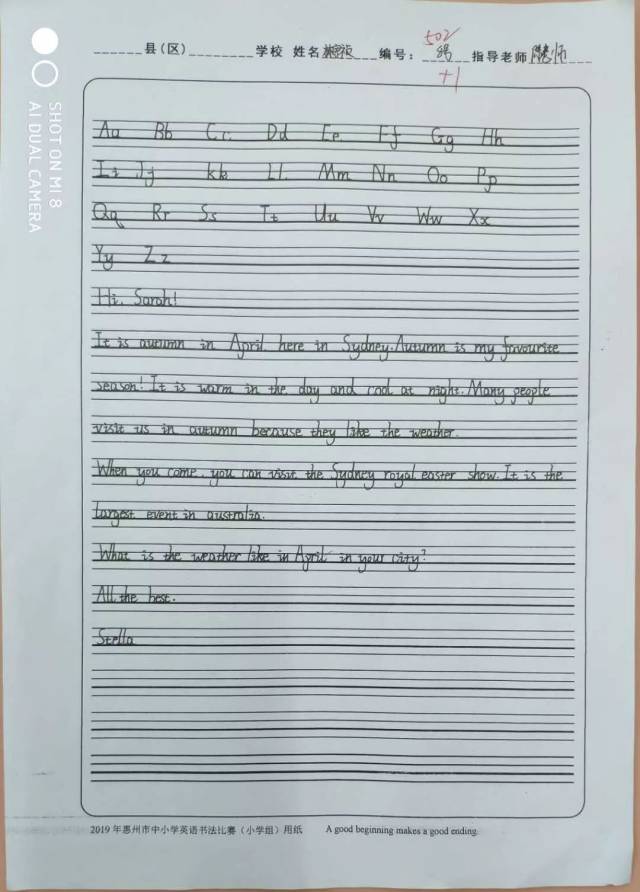 SHOT ON MI 8
AI DUAL CAMERA
502
县（区） 学校 姓名 编号： 指导老师
+1
Aa Bb Cc Dd Ee Ff Gg Hh
Ii Jj Kk Ll Mm Nn Oo Pp
Qq Rr Ss Tt Uu Vv Ww Xx
Yy Zz
Hi, Sarah!
It is autumn in April here in Sydney. Autumn is my favourite
season! It is warm in the day and cool at night. Many people
visit us in autumn because they like the weather.
When you come, you can visit the Sydney royal easter show. It is the
largest event in australia.
What is the weather like in April in your city?
All the best.
Stella
2019 年惠州市中小学英语书法比赛（小学组）用纸 A good beginning makes a good ending.